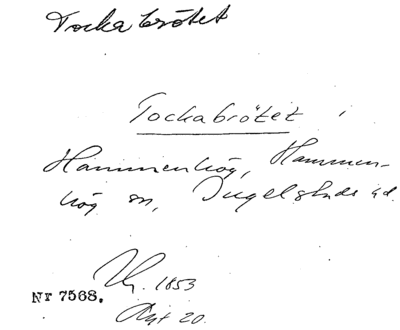 Tockabrötet
Tockabrötet i
Hammenhög, Hammen-
hög sn, Ingelstads hd.
1853
Nr 7568.
Akt 20.